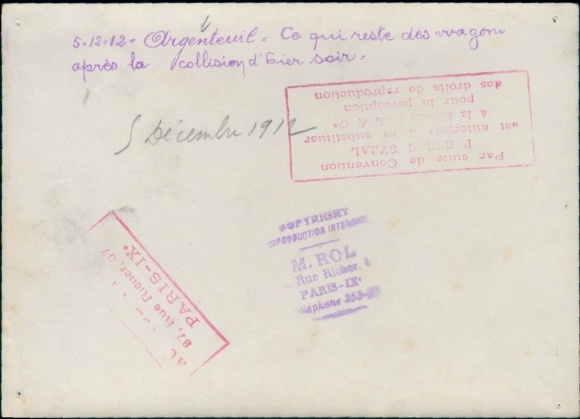 5-12-12 - Argenteuil. Ce qui reste des wagon
après la collision d'hier soir.
5 Décembre 1912
Par suite de Convention
est autorisée à se substituer
à la & Cie
pour la perception
des droits de reproduction
COPYRIGHT
M. ROL
Rue Richer, 4
PARIS-IXe
PARIS-IXe